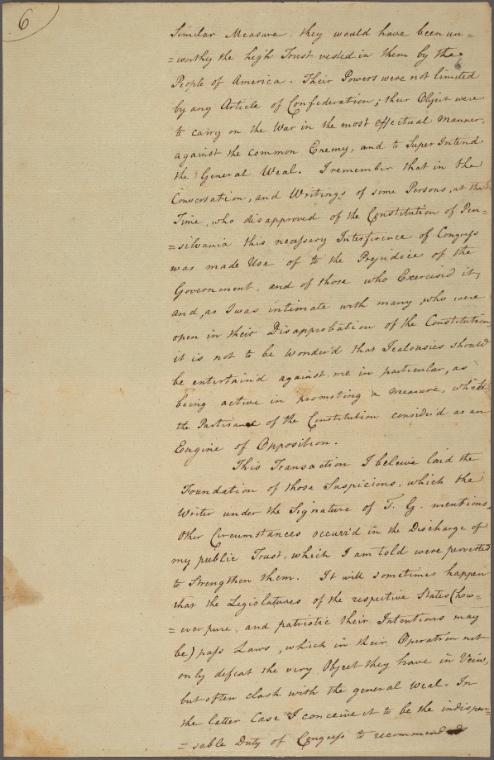 6
Similar Measure, they would have been un=
=worthy the high Trust vested in them by the
People of America. Their Powers were not limited
by any Article of Confederation; their Object were
to carry on the War in the most effectual Manner,
against the common Enemy, and to Super Intend
the General Weal. I remember that in the
Conversation, and Writings of some Persons, at that
Time, who disapproved of the Constitution of Pen=
=silvania this necessary Interference of Congress
was made Use of to the Prejudice of the
Government, and of those who Exercised it;
and, as I was intimate with many who were
open in their Disapprobation of the Constitution
it is not to be Wonder'd that Jealousies should
be entertain'd against me in particular, as
being active in promoting a measure, which
the Partisans of the Constitution consider'd as an
Engine of Opposition.
This Transaction I beleive laid the
Foundation of those Suspicions, which the
Writer under the Signature of T. G. mentions,
Other Circumstances occurr'd in the Discharge of
my public Trust, which I am told were perverted
to Strengthen them. It will sometimes happen
that the Legislatures of the respective States (how=
=ever pure, and patriotic their Intentions may
be) pass Laws, which in their Operation not
only defeat the very Object they have in View,
but often clash with the general Weal. In
the latter Case I conceive it to be the indispen=
=sable Duty of Congress to recommend